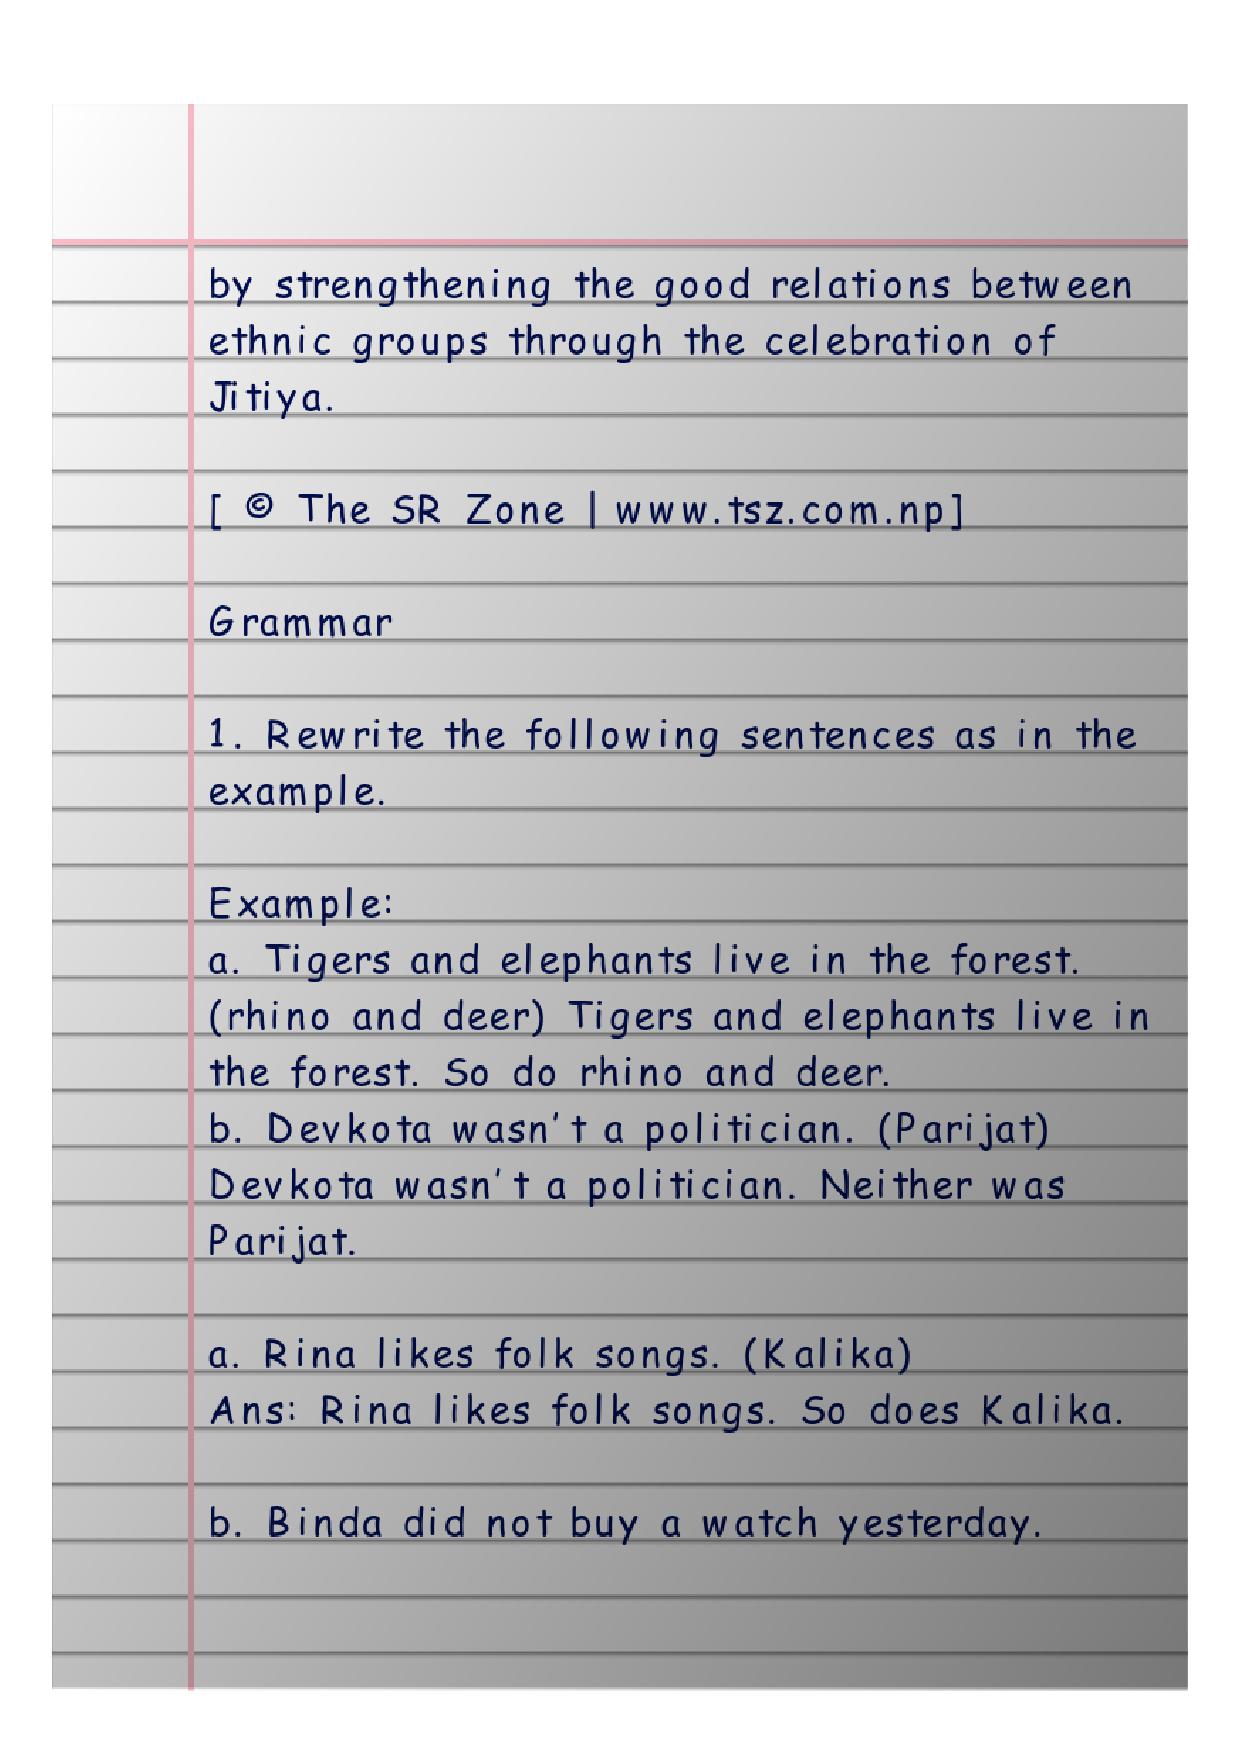 by strengthening the good relations between
ethnic groups through the celebration of
Jitiya.
[ © The SR Zone | www.tsz.com.np]
Grammar
1. Rewrite the following sentences as in the
example.
Example:
a. Tigers and elephants live in the forest.
(rhino and deer) Tigers and elephants live in
the forest. So do rhino and deer.
b. Devkota wasn't a politician. (Parijat)
Devkota wasn't a politician. Neither was
Parijat.
a. Rina likes folk songs. (Kalika)
Ans: Rina likes folk songs. So does Kalika.
b. Binda did not buy a watch yesterday.